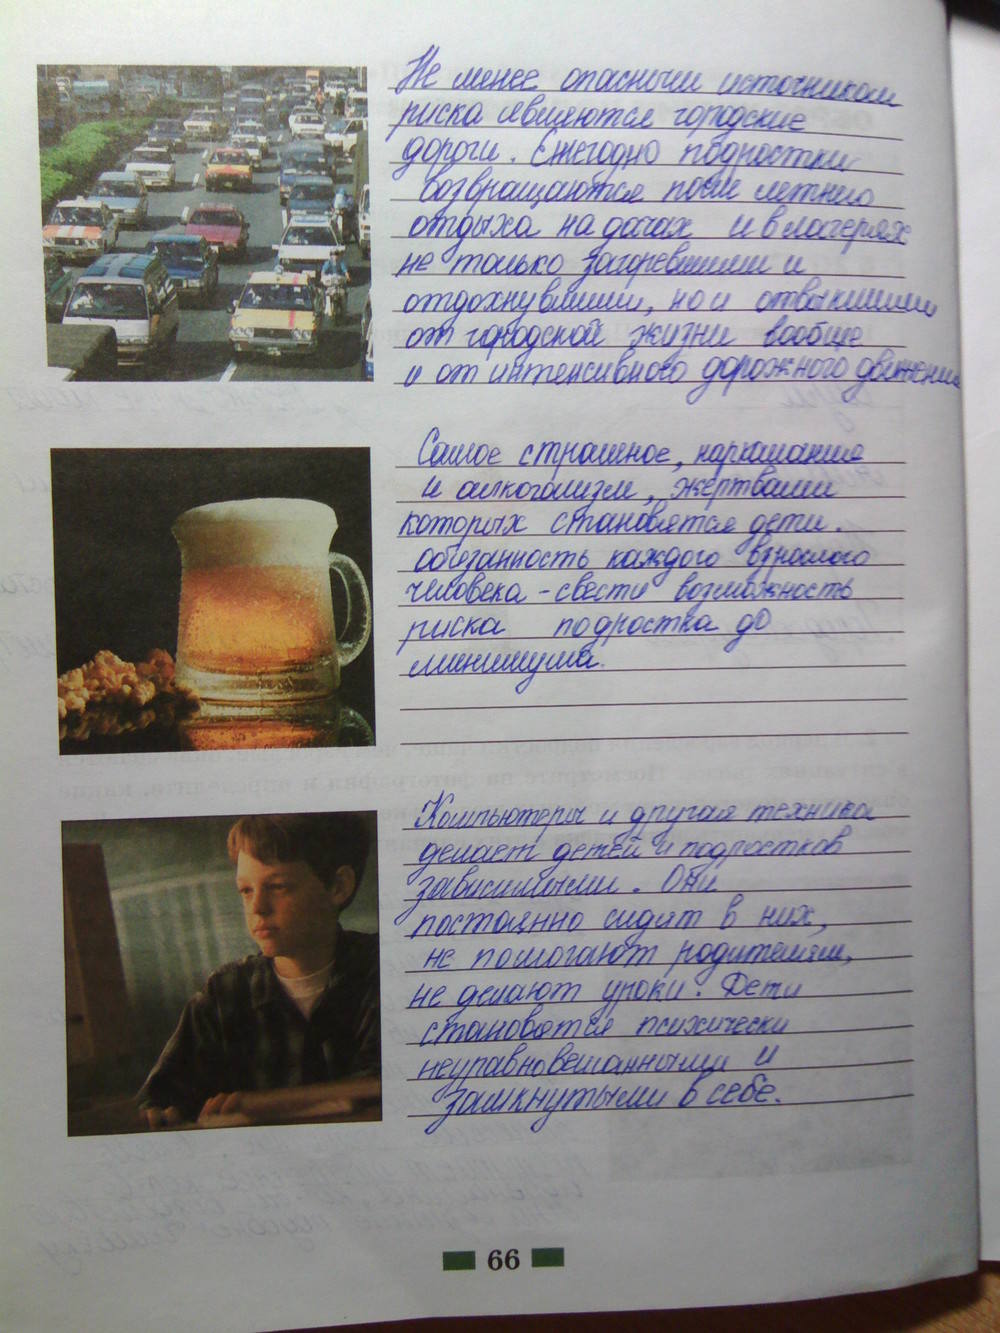 Не менее опасным источником
риска являются городские
дороги. Ежегодно подростки
возвращаются после летнего
отдыха на дачах и в лагерях
не только загоревшими и
отдохнувшими, но и отвыкшими
от городской жизни вообще
и от интенсивного дорожного движения
Самое страшное, наркомания
и алкоголизм, жертвами
которых становятся дети.
обезанность каждого взрослого
человека - свести возможность
риска подростка до
минимума.
Компьютеры и другая техника
делает детей и подростков
зависимыми. Они
постоянно сидят в них,
не помогают родителям,
не делают уроки. Дети
становятся психически
неуравновешанными и
замкнутыми в себе.
66